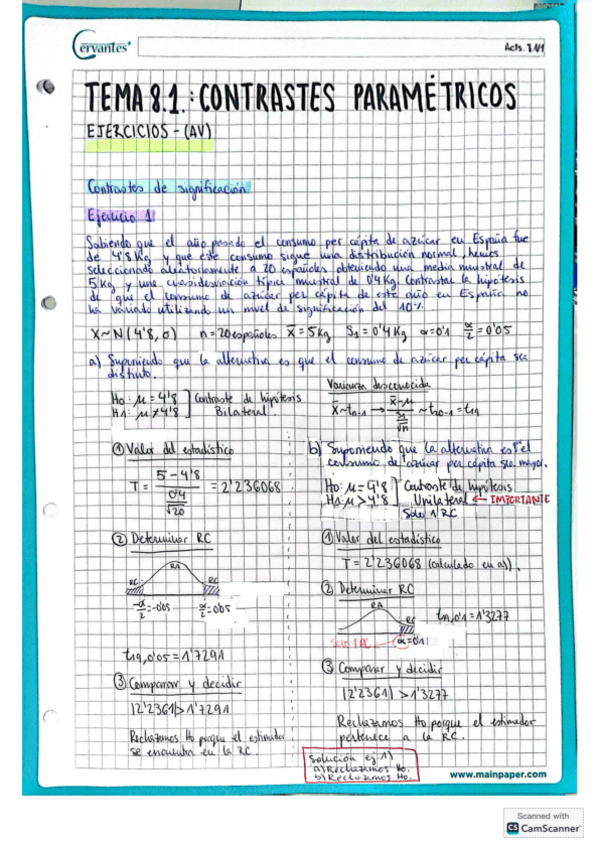 Cervantes
Acts. 8.1/1
TEMA 8.1.: CONTRASTES PARAMÉTRICOS
EJERCICIOS - (AV)
Contrastes de significación
Ejercicio 1
Sabiendo que el año pasado el consumo per cápita de azúcar en España fue
de 4'8 Kg y que este consumo sigue una distribución normal, hemos
seleccionado aleatoriamente a 20 españoles obteniendo una media muestral de
5 Kg y una cuasidesviación típica muestral de 0'4 Kg. Contrastar la hipótesis
de que el consumo de azúcar per cápita de este año en España no
ha variado utilizando un nivel de significación del 10%.
X~N(4'8, σ) n=20 españoles x̄=5Kg S₁=0'4Kg α=0'1 α/2=0'05
a) Suponiendo que la alternativa es que el consumo de azúcar per cápita sea
distinto.
H₀: μ=4'8 ] Contraste de hipótesis
H₁: μ≠4'8 ] Bilateral.
Varianza desconocida
x̄~tₙ₋₁ → (x̄-μ)/(S₁/√n) ~ t₂₀₋₁ = t₁₉
① Valor del estadístico
T = (5-4'8)/(0'4/√20) = 2'236068
② Determinar RC
RA
RC
RC
-α/2=-0'05 α/2=0'05
t₁₉,₀'₀₅ = 1'7291
③ Comparar y decidir
|2'2361|>1'7291
Rechazamos H₀ porque el estimador
se encuentra en la RC.
b) Suponiendo que la alternativa es el
consumo de azúcar per cápita sea mayor.
H₀: μ=4'8 ] Contraste de hipótesis
H₁: μ>4'8 ] Unilateral ← IMPORTANTE
Solo 1 RC
① Valor del estadístico
T=2'236068 (calculado en a)).
② Determinar RC
RA
RC
t₁₉,₀'₁=1'3277
Solo 1 RC
α=0'1
③ Comparar y decidir
|2'2361|>1'3277
Rechazamos H₀ porque el estimador
pertenece a la RC.
Solución ej.1)
a) Rechazamos H₀.
b) Rechazamos H₀.
www.mainpaper.com
Scanned with
CS CamScanner